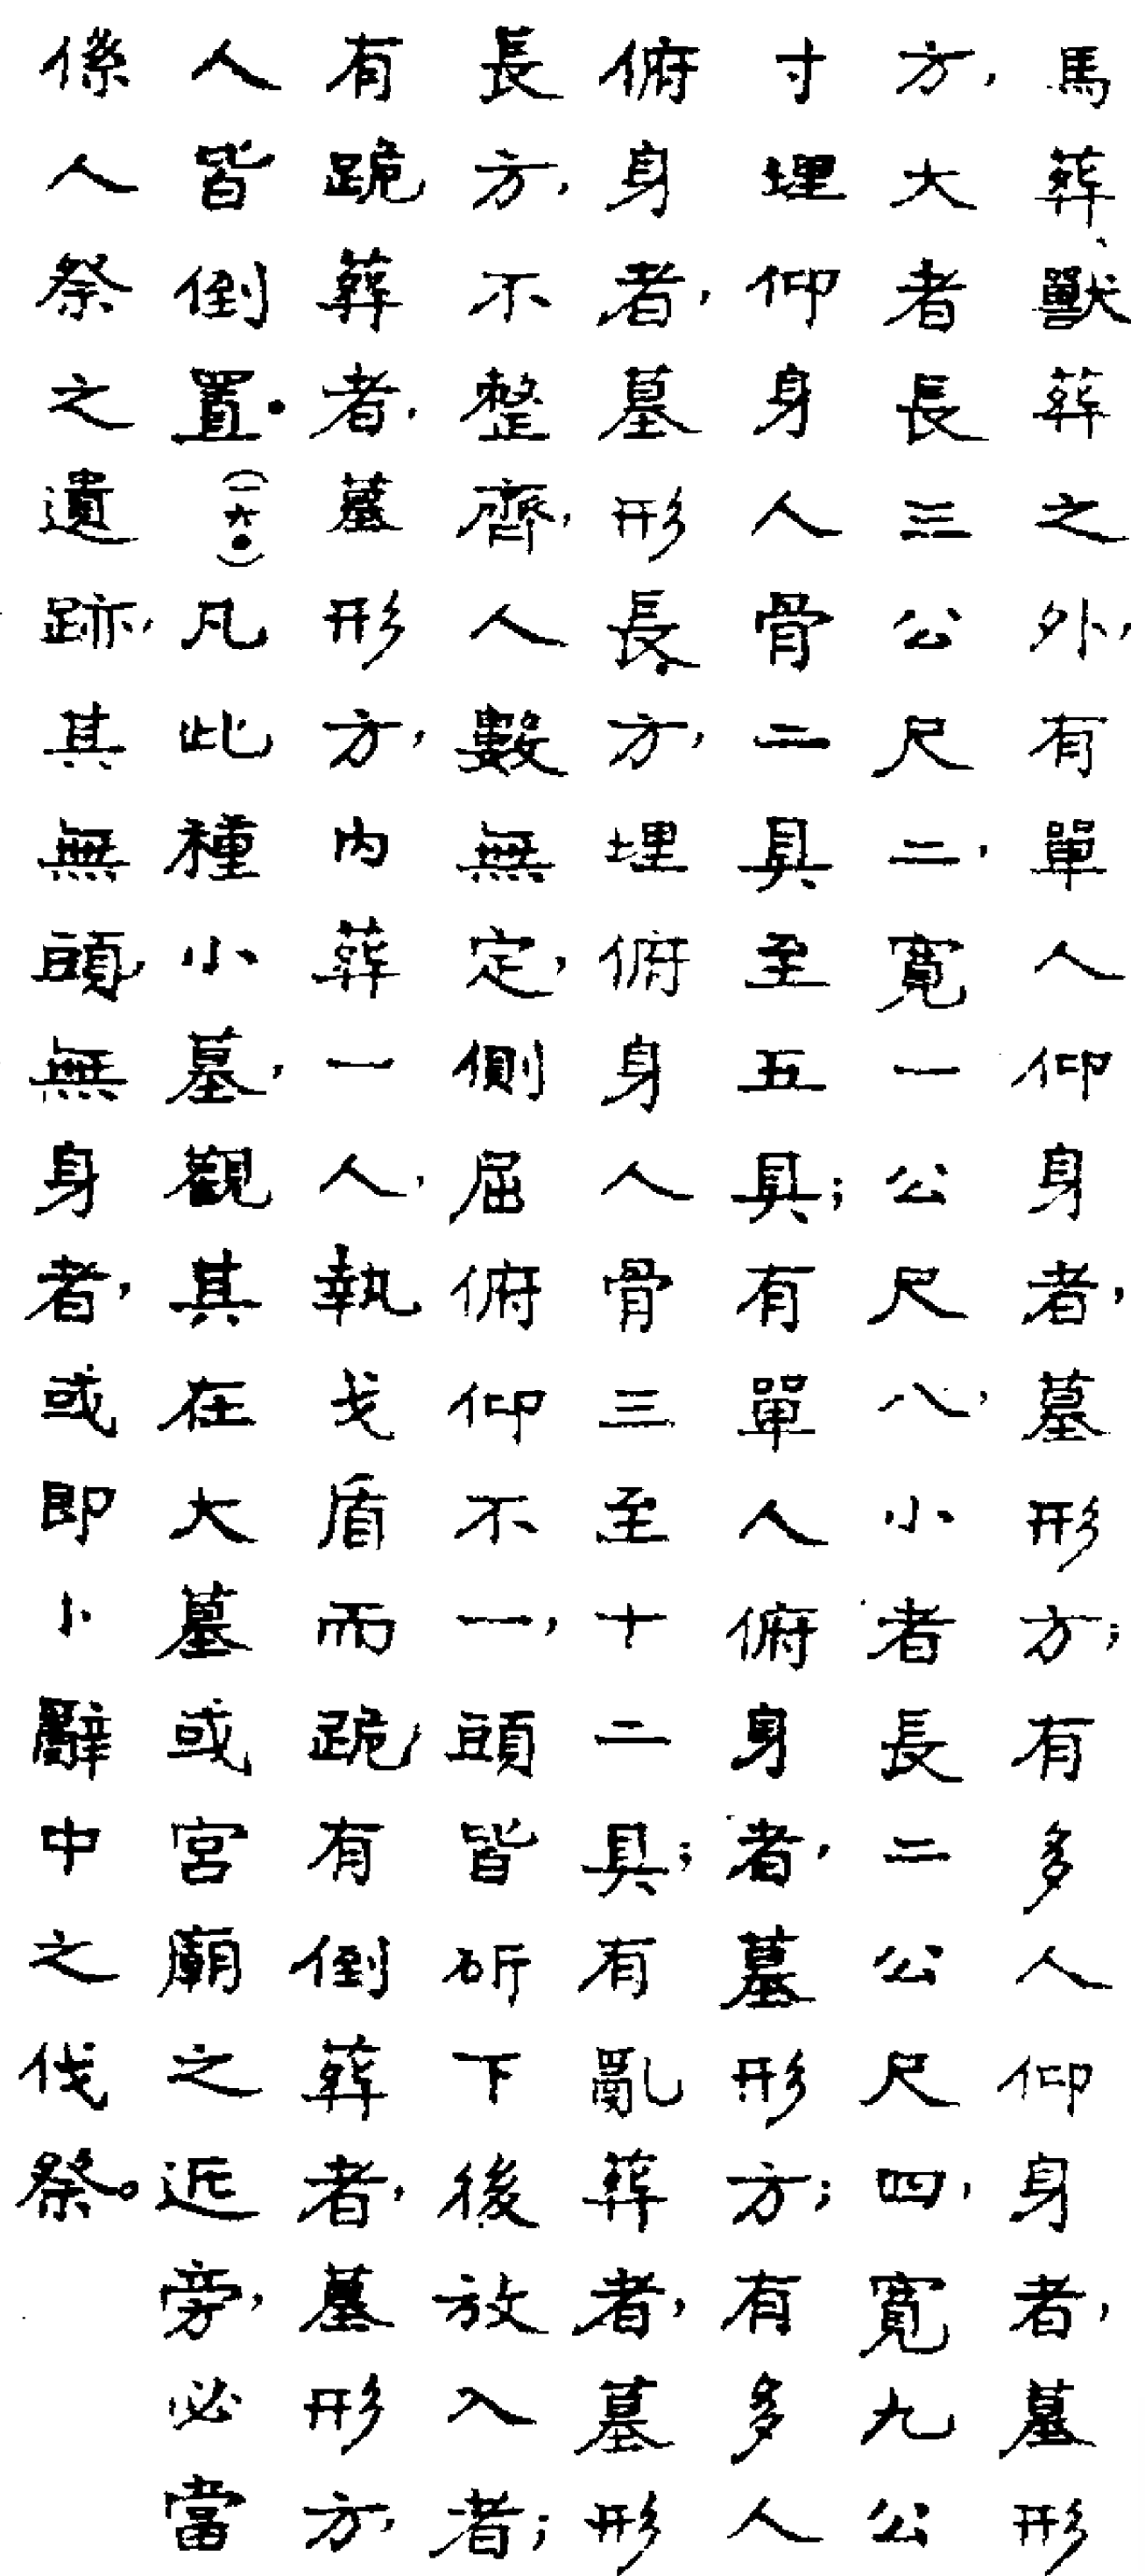 馬葬、獸葬之外，有單人仰身者，墓形方；有多人仰身者，墓形
方，大者長三公尺二，寬一公尺八，小者長二公尺四，寬九公
寸埋仰身人骨二具至五具；有單人俯身者，墓形方；有多人
俯身者，墓形長方，埋俯身人骨三至十二具；有亂葬者，墓形
長方，不整齊，人數無定，側屈俯仰不一，頭皆斫下後放入者；
有跪葬者，墓形方，內葬一人，執戈盾而跪；有倒葬者，墓形方，
人皆倒置。（一六●）凡此種小墓，觀其在大墓或宮廟之近旁，必當
係人祭之遺跡，其無頭，無身者，或即卜辭中之伐祭。